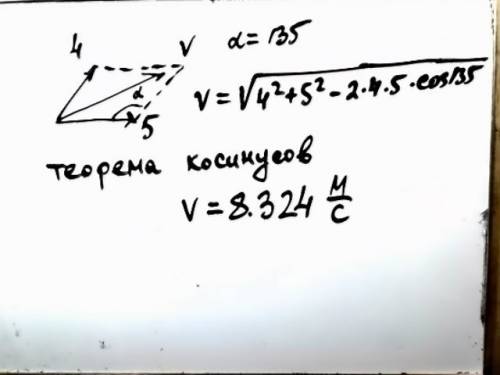 4 V α = 135
α
5
V = √4² + 5² - 2·4·5·cos135
теорема косинусов
V = 8.324 м/с